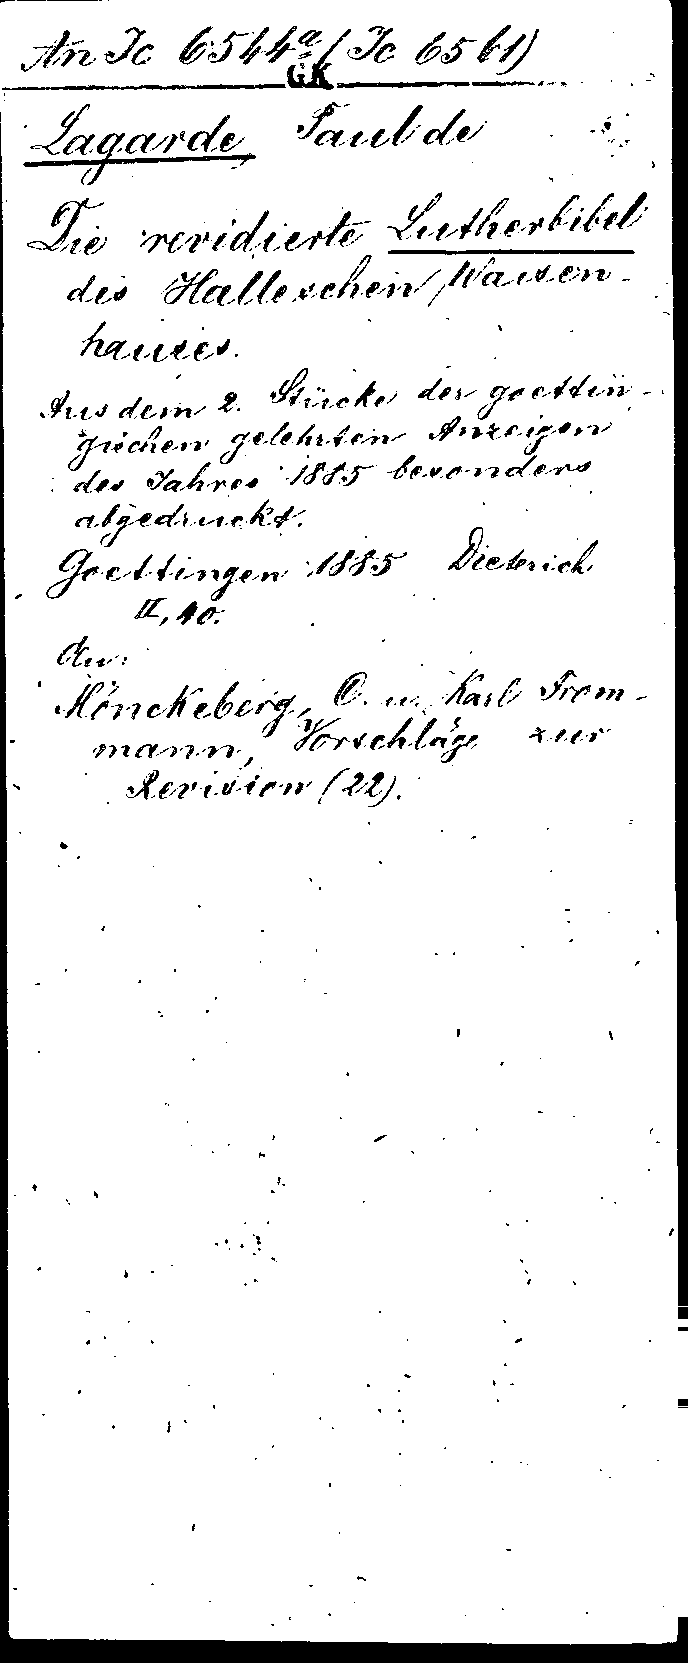 An Ic 6544a (Ic 6561)
GK
Lagarde, Paul de
Die revidierte Lutherbibel
des Halleschen Waisen-
hauses.
Aus dem 2. Stücke der goettin-
gischen gelehrten Anzeigen
des Jahres 1885 besonders
abgedruckt.
Goettingen 1885 Dieterich
II, 40.
An:
Mönckeberg, O. u. Karl From-
mann, Vorschläge zur
Revision (22).